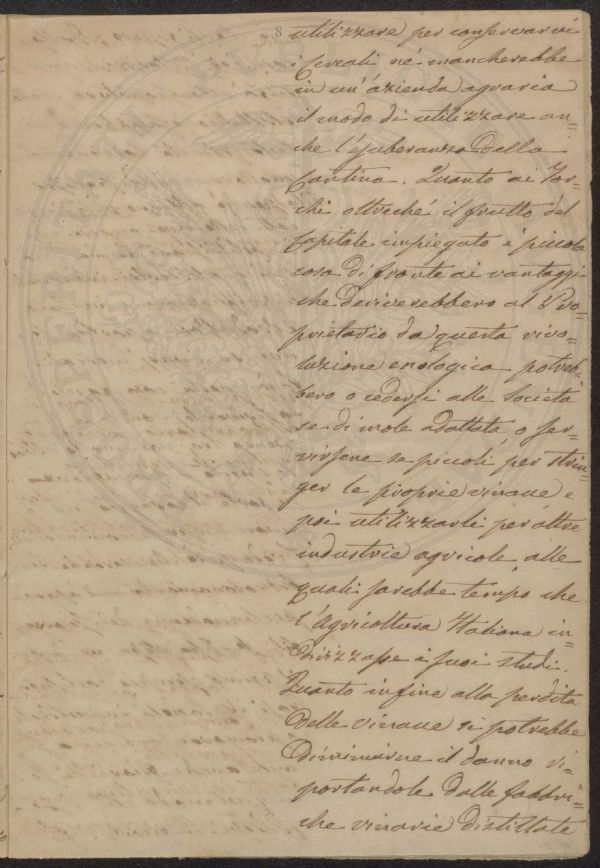 8
utilizzare per conservarvi
i cereali nè mancherebbe
in un'azienda agraria
il modo di utilizzare an=
che l'esuberanza della
Cantina. Quanto ai Tor=
chi oltrechè il frutto del
Capitale impiegato è piccola
cosa di fronte ai vantaggi
che deriverebbero al Pro=
prietario da questa rivo=
luzione enologica potreb=
bero o cedersi alle Società
se di mole adattata, o ser=
virsene se piccoli, per strin=
ger le proprie vinacce e
poi utilizzarli per altre
industrie agricole, alle
quali sarebbe tempo che
l'Agricoltura Italiana in=
dirizzasse i suoi studi.
Quanto infine alla perdita
delle vinacce si potrebbe
diminuirne il danno ri=
portandole dalle fabbri=
che vinarie distillate